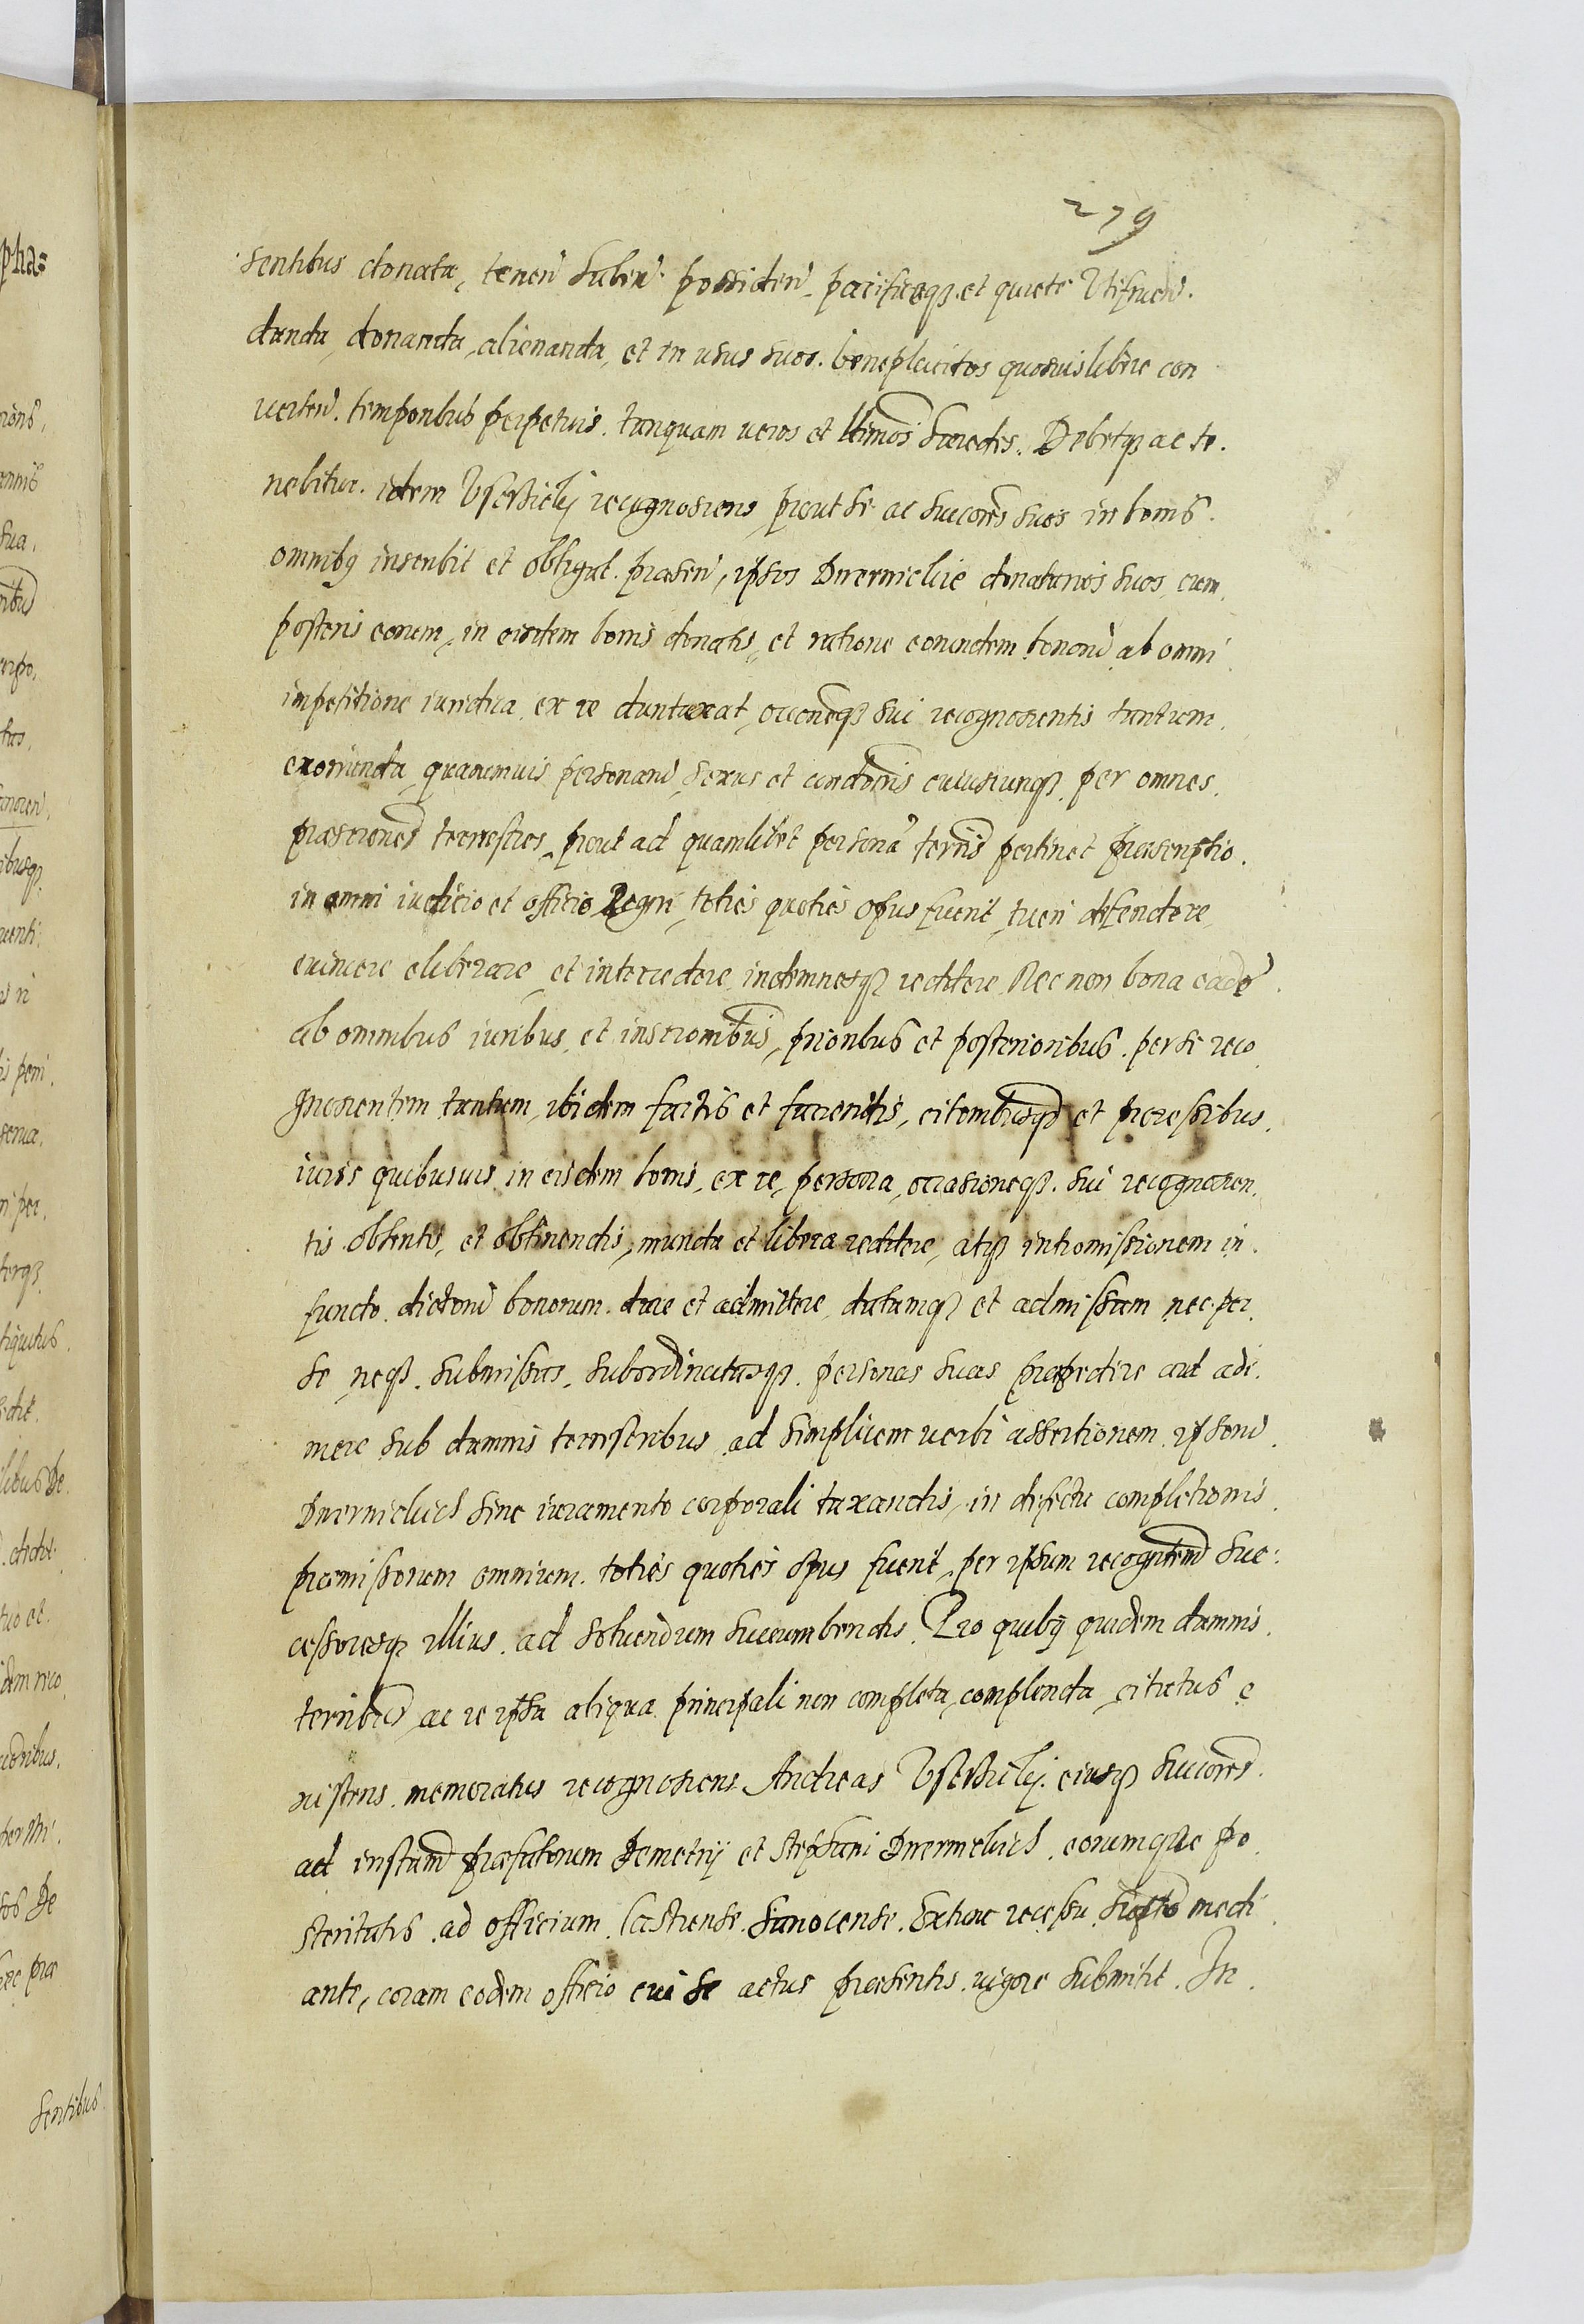 279
sentibus donata, tenen haben possiden pacificeqz et quiete Utifruen.
danda, donanda, alienanda, et in usus suos beneplacitos quosvis libere con
verten. temporibus perpetuis. tanquam veros et ltimos haeredes. Debetqz ac te
nebitur idem Usessicky recognoscens prout se ac succores suos in bonis
omnibq inscribit et obligat praesen, ipsos Dwernickie donatarios suos cum
posteris eorum, in eisdem bonis donatis, et ratione eorundem bonoru ab omni
impetitione iuridica ex re duntaxat, occoneqz sui recognoscentis tantum
exoriunda, quarumvis personaru, sexus et condonis cuiuscunqz per omnes
praescriones terrestres, prout ad quamlibet personã terris pertinet praescriptio
in omni iudicio et officio Regni, toties quoties opus fuerit, tueri defendere
evincere eliberare, et intercedere, indemnesqz reddere. Nec non bona eadẽ
ab omnibus iuribus et inscriombus, prioribus et posterioribus per se reco
gnoscentem tantum, ibidem factis et faciendis, citombusqz et processibus
iuris quibusvis in eisdem bonis, ex re, persona, occasioneqz sui recognoscen
tis obtentis, et obtinendis, munda et libera reddere, atqz intromissionem in
fundo dictoru bonorum dare et admittere, datamqz et admissam nec per
se neqz submissas, subordinatasqz personas suas praepedire aut adi
mere sub damnis terrestribus ad simplicem verbi assertionem ipsoru
Dwernickich sine iuramento corporali taxandis, in defectu completionis
praemissorum omnium toties quoties opus fuerit, per ipsum recognten suc:
cessoresqz illius ad solvendum succumbendis. Pro quibq quidem damnis
terribus, ac re ipsa aliqua principali non completa, complenda citatus e
xistens memoratus recognoscens Andreas Usessicky eiusqz succores
ad instam praefatorum Demetrij et Stephani Dwernickich eorumque po
steritatis ad officium Castrense Sanocense. Extunc recessu medi
ante, coram eodem officio cui se actus praesentis vigore submittit. In
Sentibus